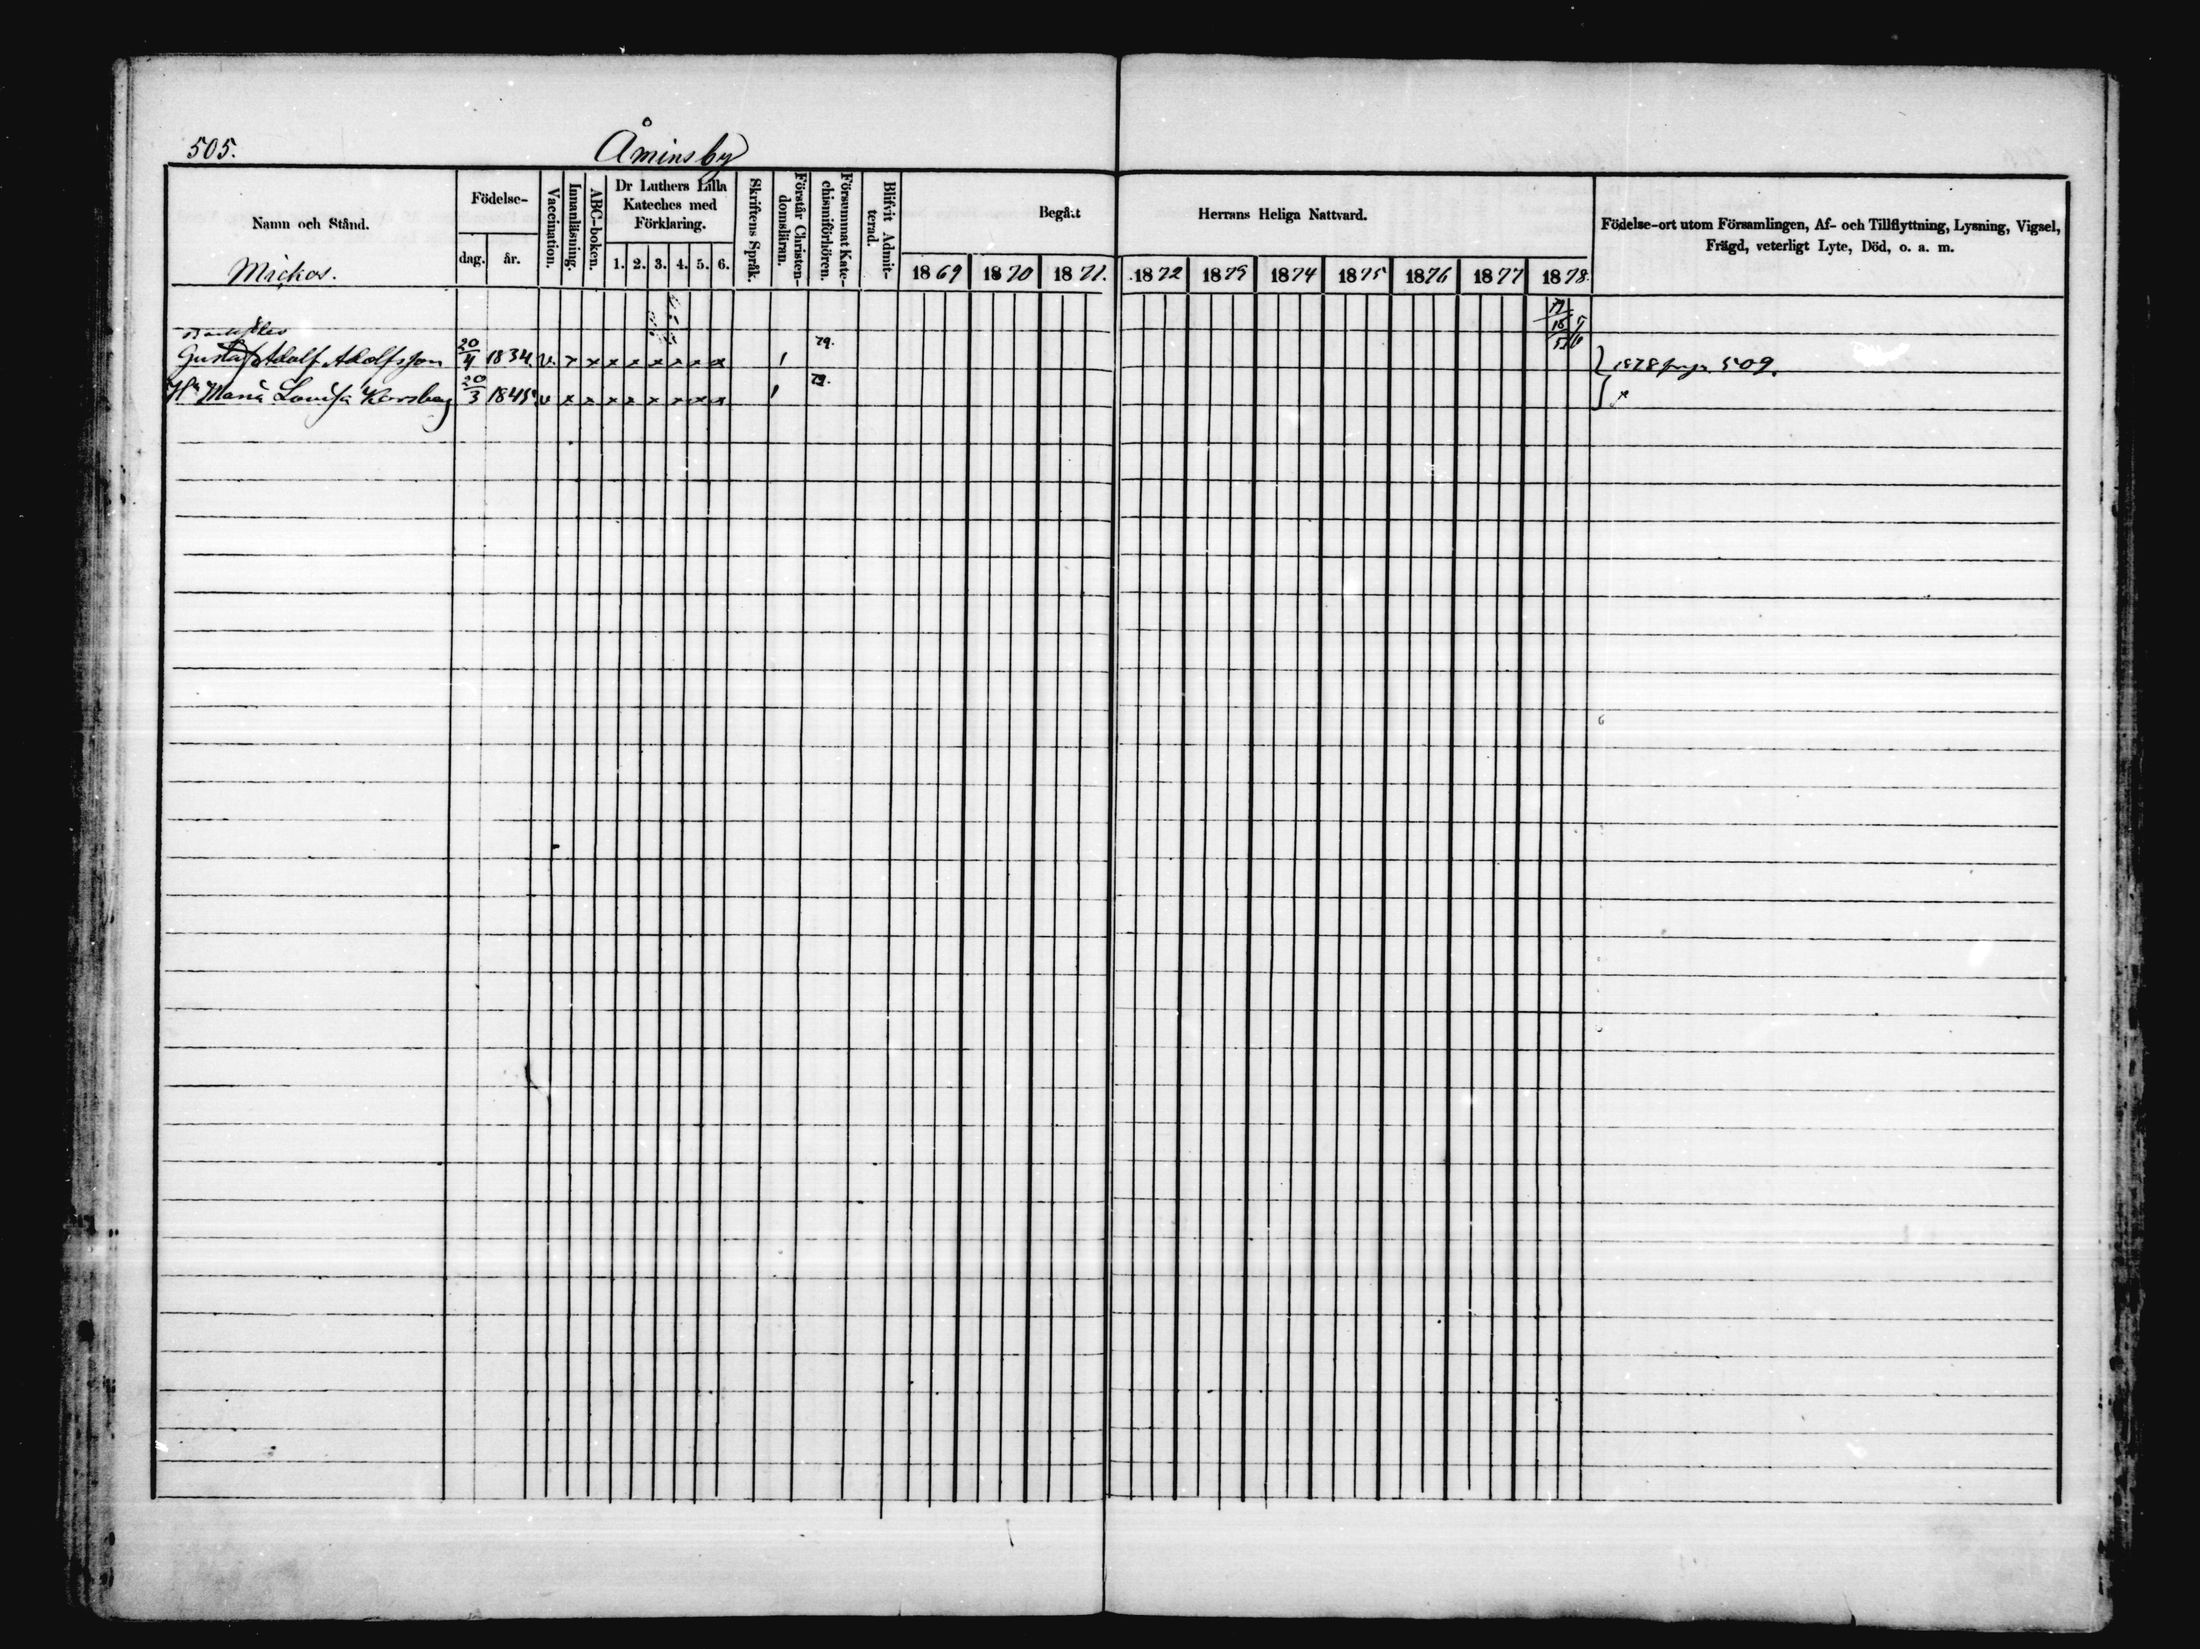 505.
Åminsby
Namn och Stånd.
Mickos.
Födelse-
dag.
år.
Vaccination.
Innanläsning.
ABC-boken.
Dr Luthers Lilla
Kateches med
Förklaring.
1. 2. 3. 4. 5. 6.
Skriftens Språk.
Förstår Christen-
domsläran.
Försummat Kate-
chismiförhören.
Blifvit Admit-
terad.
Begått
Herrans Heliga Nattvard.
1869 1870 1871. 1872 1873 1874 1875 1876 1877 1878.
Födelse-ort utom Församlingen, Af- och Tillflyttning, Lysning, Vigsel,
Frägd, veterligt Lyte, Död, o. a. m.
Gustaf Adolf Adolfsson 20/4 1834. v. x x x x x x x x 79.
1878 509.
Hu Maria Lovisa 20/3 1845. v x x x x x x x x 79.